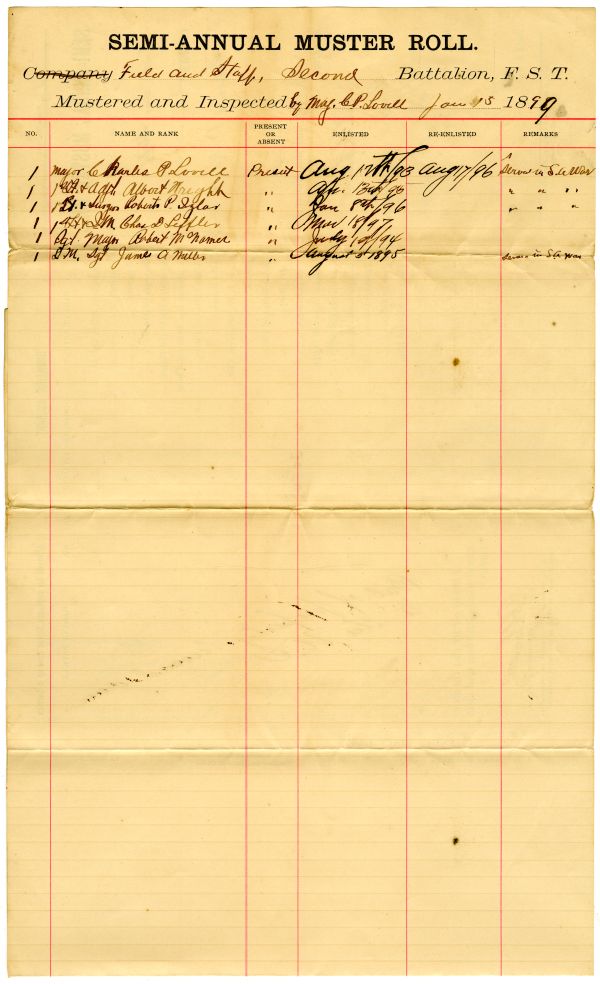 SEMI-ANNUAL MUSTER ROLL.
Company Field and Staff, Second Battalion, F. S. T.
Mustered and Inspected by Maj. C. P. Lovell Jan 15 1899
NO. NAME AND RANK PRESENT OR ABSENT ENLISTED RE-ENLISTED REMARKS
1 Major Charles P Lovell Present Aug 17th/93 Aug 17/96 Served in S. A War
1 1st Lt. & Adjt. Albert Wright " " " "
1 1st Lt. & Surgn Roberts P. Izlar " Jan 8th/96 " " "
1 1st Lt & Q.M. Chas D Leffler " Nov 18/97
1 Sgt. Major Albert McNamee " July 19/94
1 Q.M. Sgt James A Miller " August 5 1895 Served in S A War